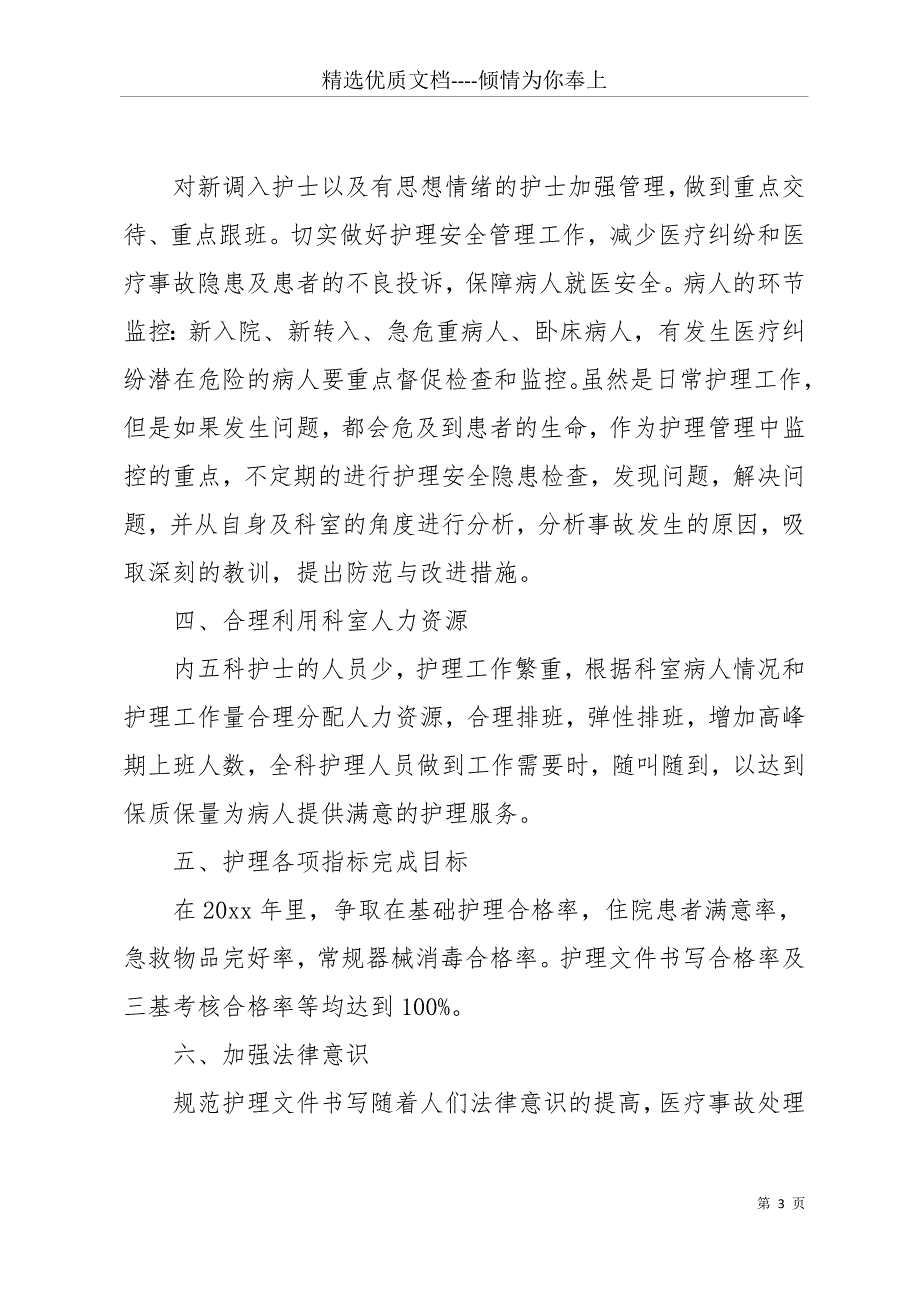 精选优质文档----倾情为你奉上
对新调入护士以及有思想情绪的护士加强管理，做到重点交
待、重点跟班。切实做好护理安全管理工作，减少医疗纠纷和医
疗事故隐患及患者的不良投诉，保障病人就医安全。病人的环节
监控：新入院、新转入、急危重病人、卧床病人，有发生医疗纠
纷潜在危险的病人要重点督促检查和监控。虽然是日常护理工作，
但是如果发生问题，都会危及到患者的生命，作为护理管理中监
控的重点，不定期的进行护理安全隐患检查，发现问题，解决问
题，并从自身及科室的角度进行分析，分析事故发生的原因，吸
取深刻的教训，提出防范与改进措施。
四、合理利用科室人力资源
内五科护士的人员少，护理工作繁重，根据科室病人情况和
护理工作量合理分配人力资源，合理排班，弹性排班，增加高峰
期上班人数，全科护理人员做到工作需要时，随叫随到，以达到
保质保量为病人提供满意的护理服务。
五、护理各项指标完成目标
在 20xx 年里，争取在基础护理合格率，住院患者满意率，
急救物品完好率，常规器械消毒合格率。护理文件书写合格率及
三基考核合格率等均达到 100%。
六、加强法律意识
规范护理文件书写随着人们法律意识的提高，医疗事故处理
第 3 页